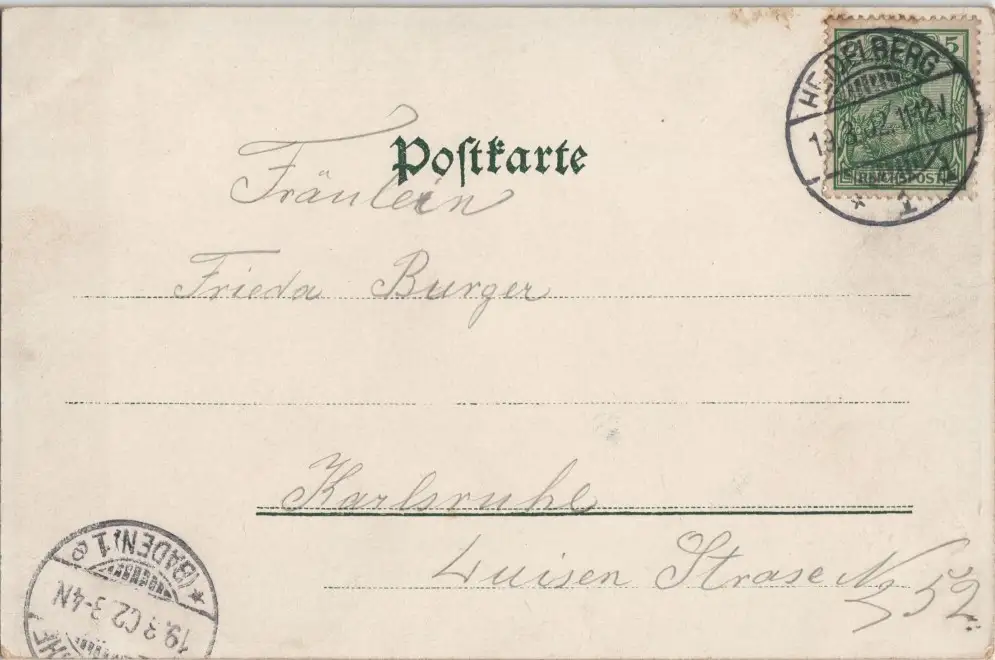 Postkarte
5
HEIDELBERG
19.3.02. 11-12 V.
* 1
REICHSPOST
Fräulein
Frieda Burger
Karlsruhe
Luisen Strase No 52.
(BADEN) 1
19.3.02 3-4N